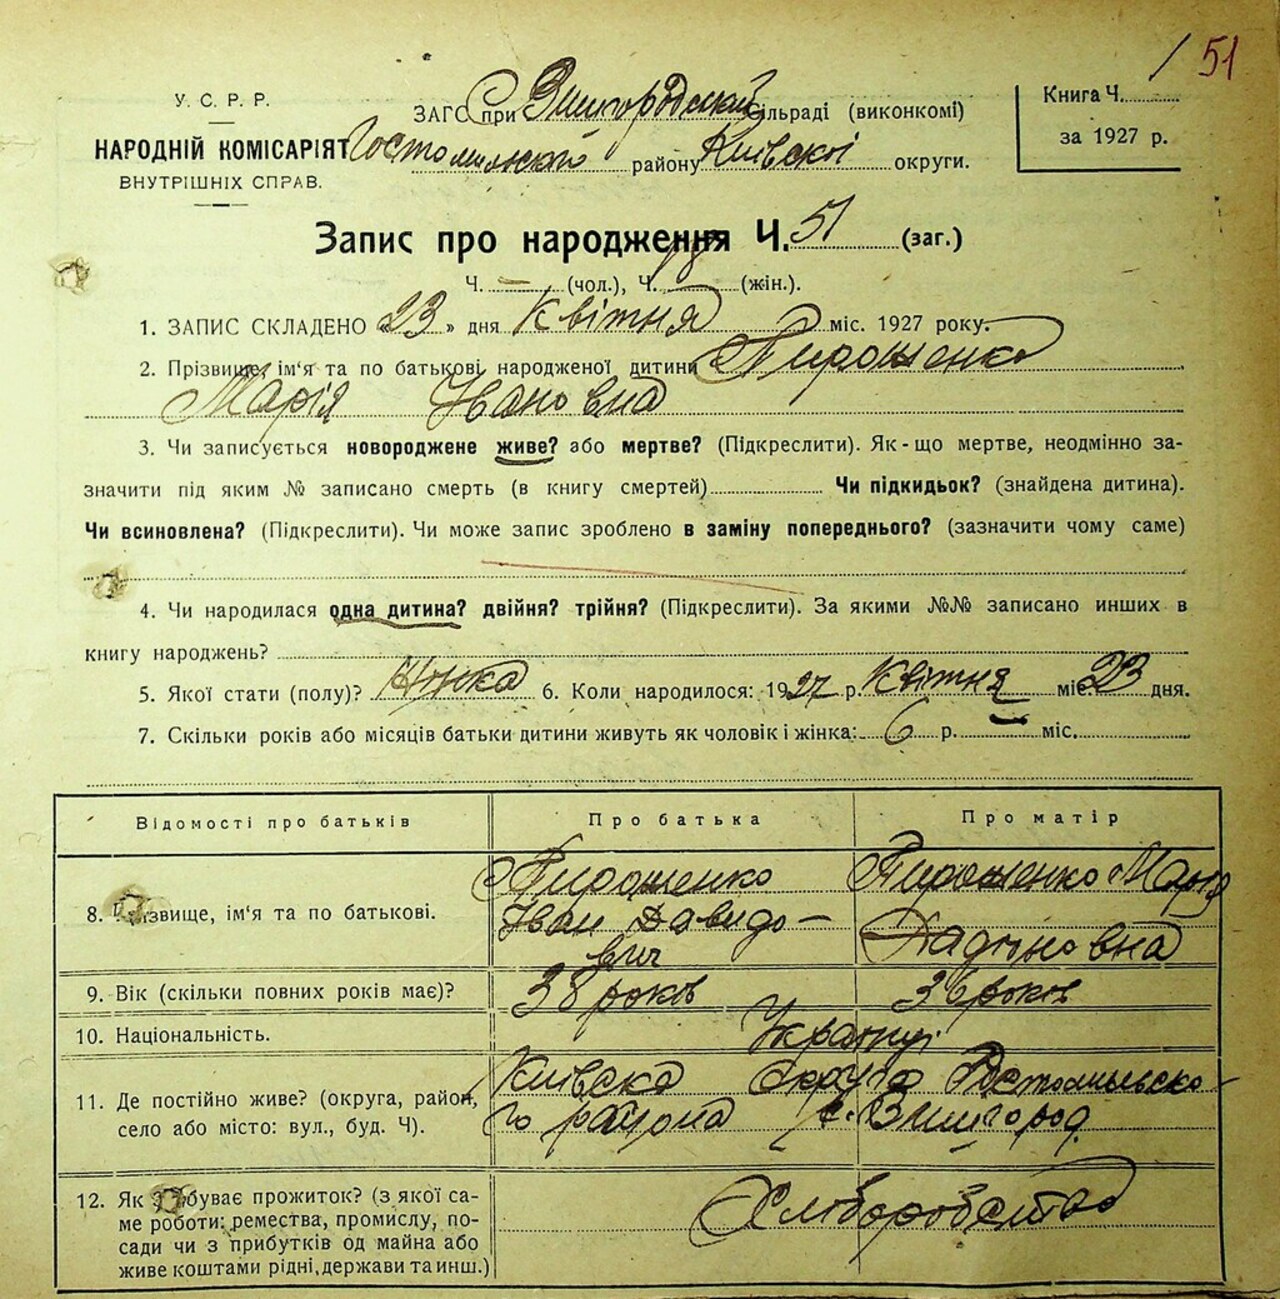 / 51
У. С. Р. Р.
НАРОДНІЙ КОМІСАРІЯТ
ВНУТРІШНІХ СПРАВ.
ЗАГС при Вишгородській сільраді (виконкомі)
Гостомльского району Київскої округи.
Книга Ч.
за 1927 р.
Запис про народження Ч. 51 (заг.)
Ч. — (чол.), Ч. 18 (жін.).
1. ЗАПИС СКЛАДЕНО «23» дня Квітня міс. 1927 року.
2. Прізвище, ім'я та по батькові народженої дитини Пирошенко
Марія Івановна
3. Чи записується новороджене живе? або мертве? (Підкреслити). Як-що мертве, неодмінно за-
значити під яким № записано смерть (в книгу смертей) Чи підкидьок? (знайдена дитина).
Чи всиновлена? (Підкреслити). Чи може запис зроблено в заміну попереднього? (зазначити чому саме)
4. Чи народилася одна дитина? двійня? трійня? (Підкреслити). За якими №№ записано инших в
книгу народжень?
5. Якої стати (полу)? Жінка 6. Коли народилося: 1927 р. Квітня міс. 23 дня.
7. Скільки років або місяців батьки дитини живуть як чоловік і жінка: 6 р. — міс.
Відомості про батьків Про батька Про матір
8. Прізвище, ім'я та по батькові.
Пирошенко
Іван Давидо-
вич
Пирошенко Марія
9. Вік (скільки повних років має)? 38 років 36 років
10. Національність. Українці
11. Де постійно живе? (округа, район,
село або місто: вул., буд. Ч).
Київска округа Гостомльско-
го района с. Вишгород
12. Як здобуває прожиток? (з якої са-
ме роботи: ремества, промислу, по-
сади чи з прибутків од майна або
живе коштами рідні, держави та инш.)
Хліборобство